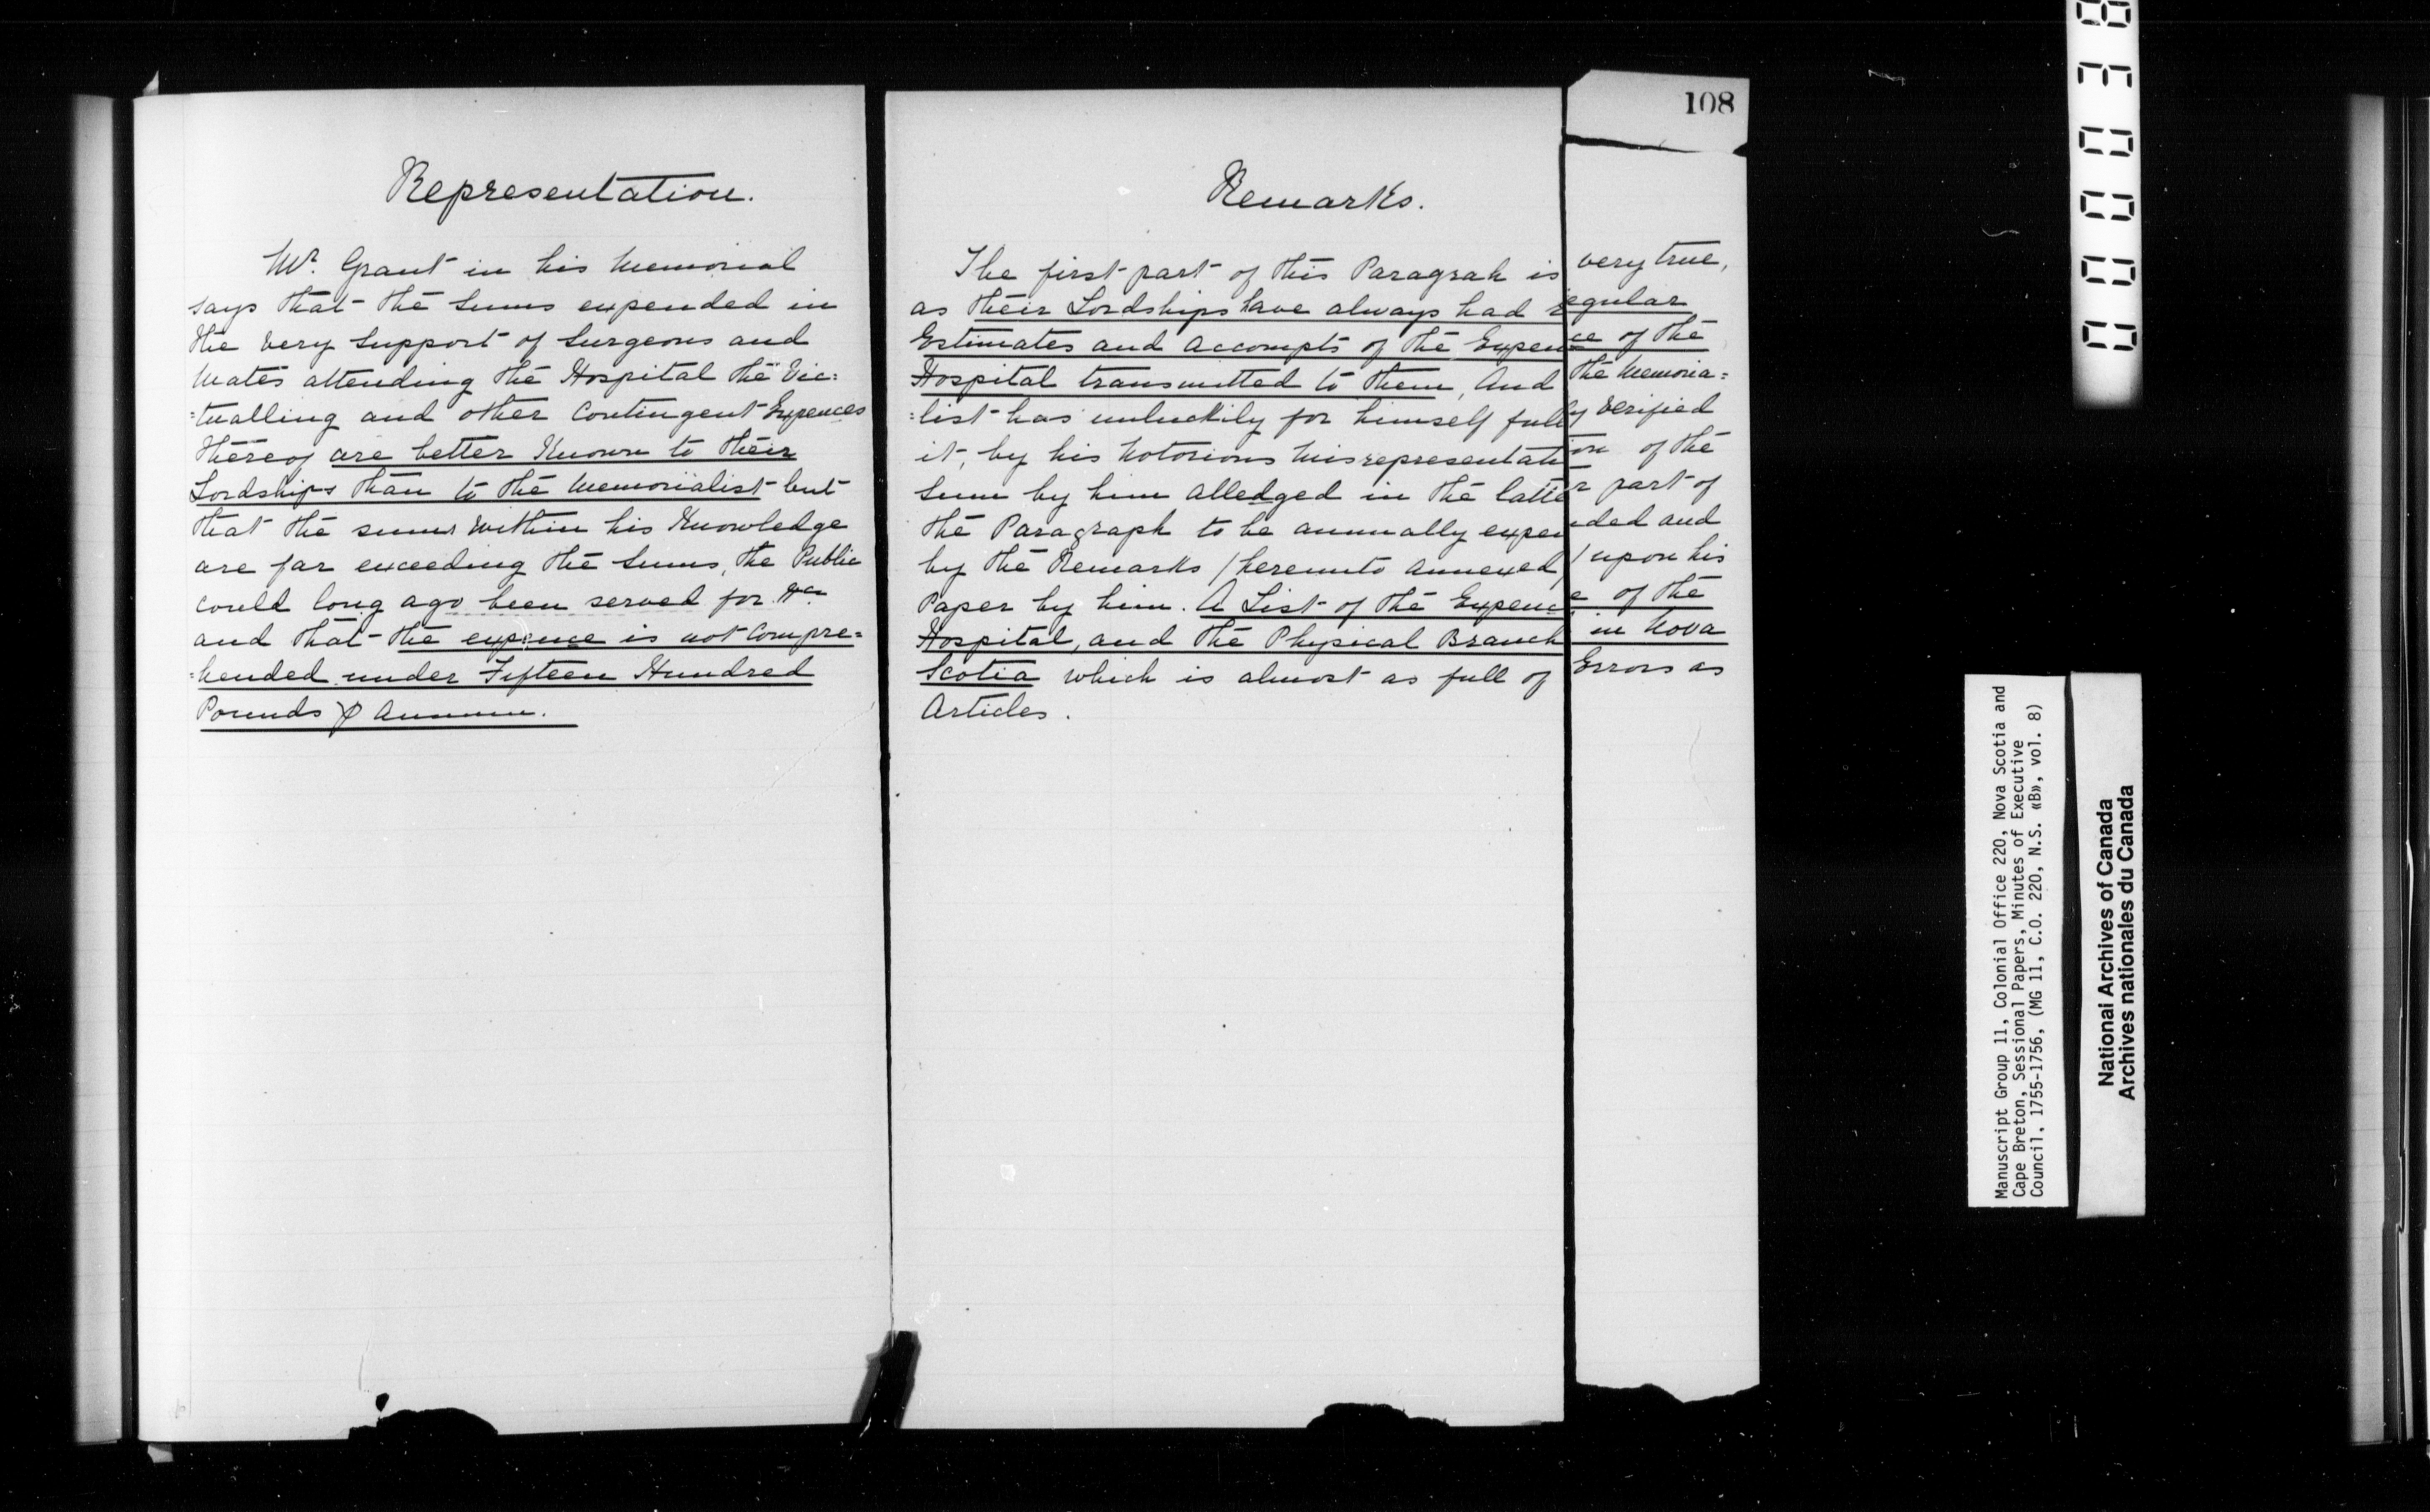 Representation.
Mr. Grant in his Memorial
says that the sums expended in
the very support of Surgeons and
Mates attending the Hospital the Vic:
=tualling and other Contingent Expences
thereof are better Known to their
Lordships than to the Memorialist but
that the sums within his Knowledge
are far exceeding the sums, the Public
could long ago been served for &ca
and that the expence is not Compre=
=hended under Fifteen Hundred
Pounds ⅌ Annum.
108
Remarks.
The first part of this Paragrah is very true,
as their Lordships have always had regular
Estimates and Accompts of the Expence of the
Hospital transmitted to them, And the Memoria=
=list has unluckily for himself fully verified
it, by his Notorious Misrepresentation of the
Sum by him alledged in the latter part of
the Paragraph to be annually expended and
by the Remarks / hereunto annexed / upon his
Paper by him. A List of the Expence of the
Hospital, and the Physical Branch in Nova
Scotia which is almost as full of Errors as
Articles.
Manuscript Group 11, Colonial Office 220, Nova Scotia and
Cape Breton, Sessional Papers, Minutes of Executive
Council, 1755-1756, (MG 11, C.O. 220, N.S. «B», vol. 8)
National Archives of Canada
Archives nationales du Canada